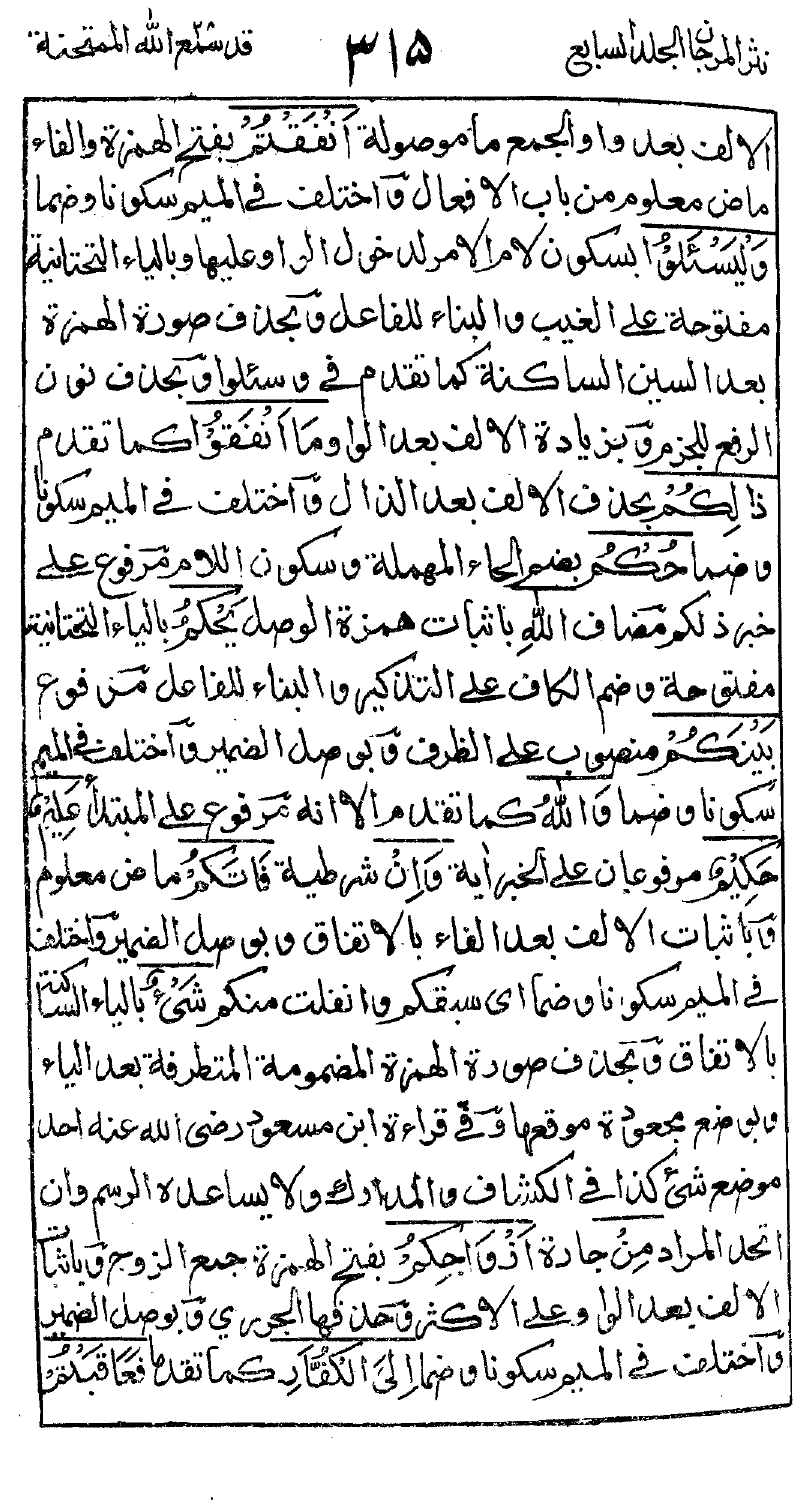 نثر المرجان الجلد السابع ٣١۵ قد سمع الله الممتحنة
الالف بعد واو الجمع ما موصولة اَنْفَقْتُمْ بفتح الهمزة والفاء
ماض معلوم من باب الافعال وٓاختلف في الميم سكونا وضما
وَلْيَسْئَلُوْا بسكون لام الامر لدخول الواو عليها وبالياء التحتانية
مفتوحة على الغيب والبناء للفاعل وٓبحذف صورة الهمزة
بعد السين الساكنة كما تقدم في وسئلوا وٓبحذف نون
الرفع للجزم وٓبزيادة الالف بعد الواو مَا اَنْفَقُوْا كما تقدم
ذٰلِكُمْ بحذف الالف بعد الذال وٓاختلف في الميم سكونا
وضما حُكْمُ بضم الحاء المهملة وسكون اللام مٓرفوع على
خبر ذلكم مٓضاف اللّٰهِ باثبات همزة الوصل يَحْكُمُ بالياء التحتانية
مفتوحة وضم الكاف على التذكير والبناء للفاعل مٓرفوع
بَيْنَكُمْ منصوب على الظرف وٓبوصل الضمير وٓاختلف في الميم
سكونا وضما وَاللّٰهُ كما تقدم الا انه مٓرفوع على المبتدأ عَلِيْمٌ
حَكِيْمٌ مرفوعان على الخبر اٰية وَاِنْ شرطية فَاتَكُمْ ماض معلوم
وٓباثبات الالف بعد الفاء بالاتفاق وبوصل الضمير وٓاختلف
في الميم سكونا وضما اى سبقكم وانفلت منكم شَيْءٌ بالياء الساكنة
بالاتفاق وٓبحذف صورة الهمزة المضمومة المتطرفة بعد الياء
وبوضع مجعودة موقعها وٓفي قراءة ابن مسعود رضى الله عنه احد
موضع شئ كذا في الكشاف والمدارك ولا يساعده الرسم وان
اتحد المراد مِنْ جارة اَزْوَاجِكُمْ بفتح الهمزة جمع الزوج وٓباثبات
الالف بعد الواو على الاكثر وٓحذفها الجزري وٓبوصل الضمير
وٓاختلف في الميم سكونا وضما اِلَى الْكُفَّارِ كما تقدم فَعَاقَبْتُمْ